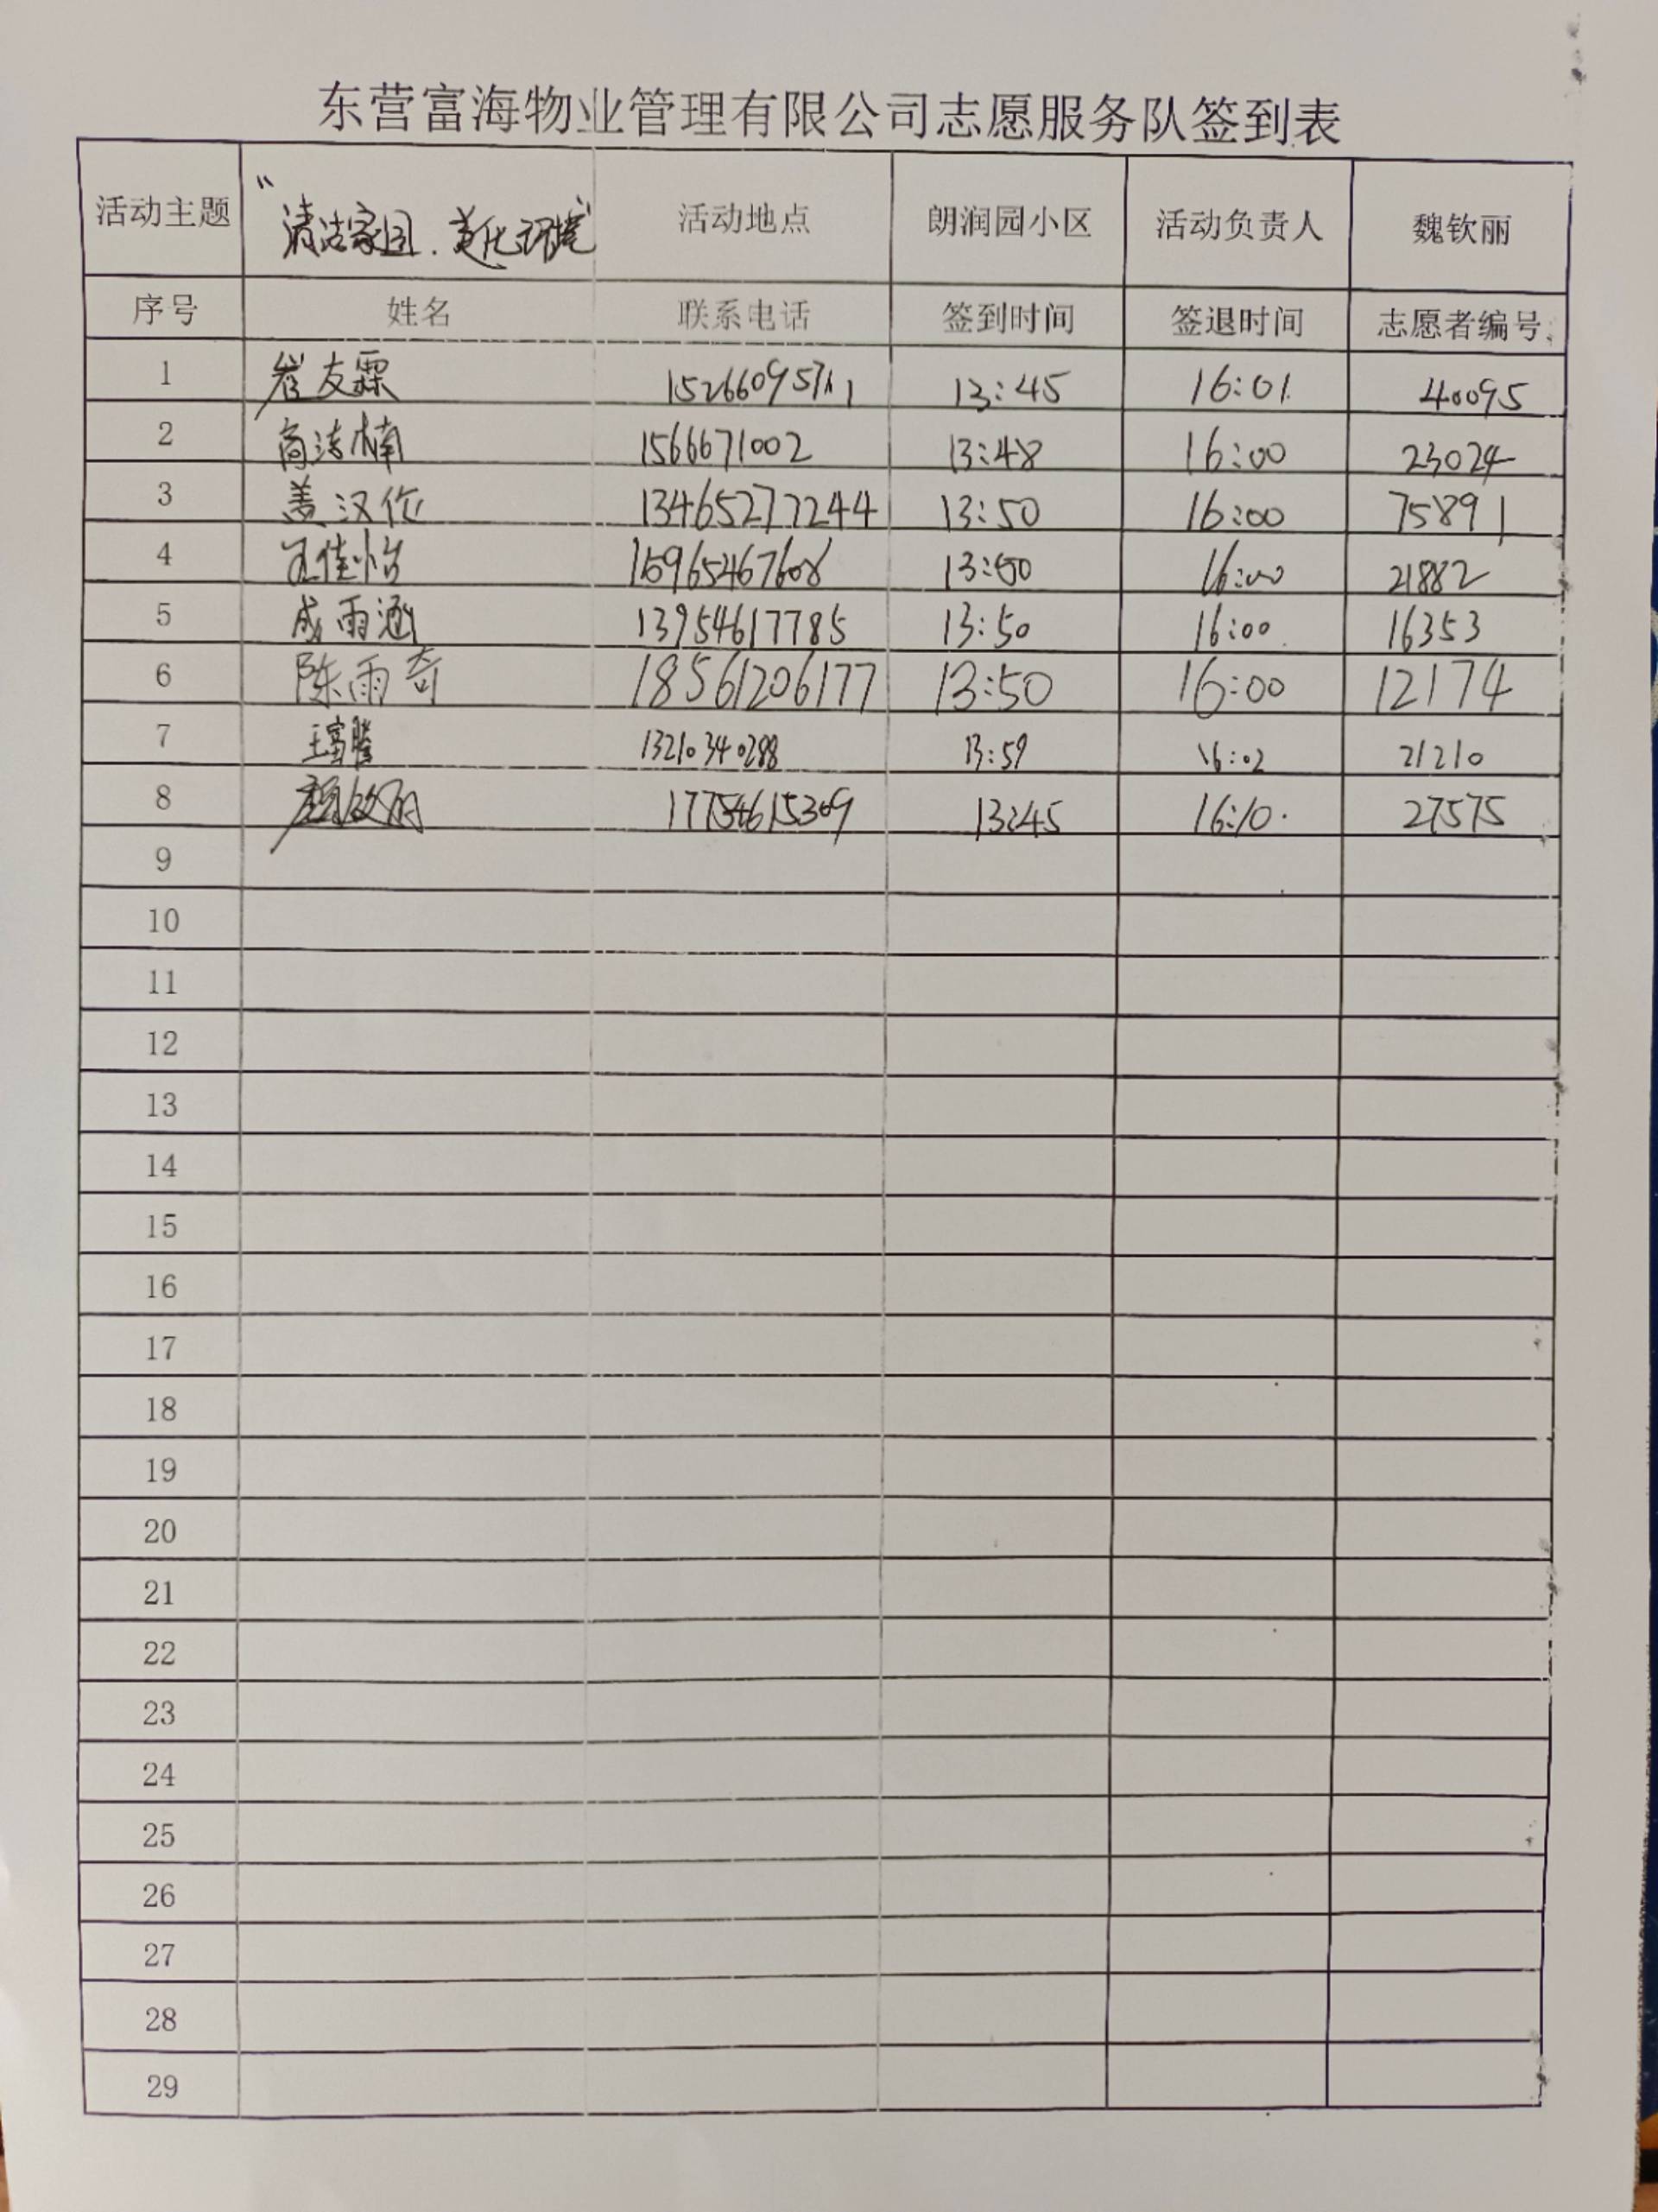 东营富海物业管理有限公司志愿服务队签到表
活动主题 “清洁家园.美化环境” 活动地点 朗润园小区 活动负责人 魏钦丽
序号 姓名 联系电话 签到时间 签退时间 志愿者编号
1 崔友霖 13:45 16:01 40095
2 商洁楠 1566671002 13:48 16:00 23024
3 盖汉伦 13465277244 13:50 16:00 75891
4 王佳怡 15965467608 13:50 16:00 21882
5 成雨涵 13954617785 13:50 16:00 16353
6 陈雨奇 18561206177 13:50 16:00 12174
7 王富腾 13210340288 13:59 16:02 21210
8 17754615309 13:45 16:10 27575
9
10
11
12
13
14
15
16
17
18
19
20
21
22
23
24
25
26
27
28
29